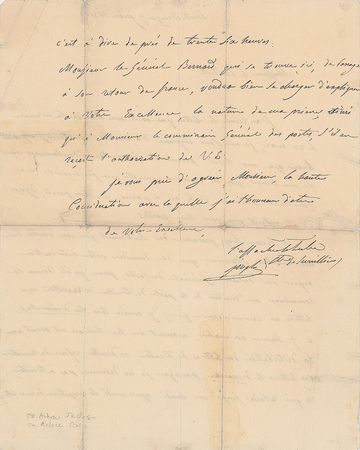 c'est à dire de près de trente six heures.
Monsieur le Général Bernard, qui se trouve ici, de
à son retour de france, voudra bien se charger d'expliquer
à Votre Excellence, la nature de ma prière,
qu'à Monsieur le commissaire Général des postes, s'il en
reçoit l'authorisation de V. E.
je vous prie d'agréer Monsieur, la haute
Considération avec la quelle j'ai l'honneur d'etre
de Votre Excellence,
l'affectionné
joseph Cte de Survilliers